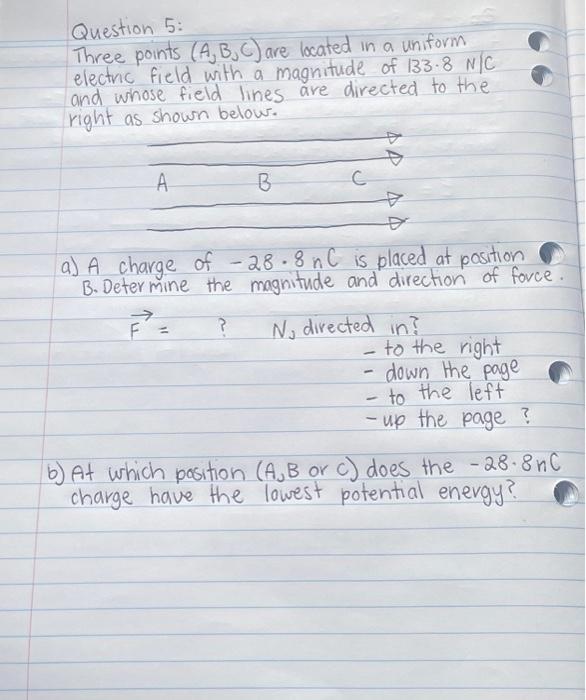 Question 5:
Three points (A,B,C) are located in a uniform
electric field with a magnitude of 133.8 N/C
and whose field lines are directed to the
right as shown below.
A B C
a) A charge of -28.8nC is placed at position
B. Determine the magnitude and direction of force.
F = ? N, directed in?
- to the right
- down the page
- to the left
- up the page ?
b) At which position (A,B or C) does the -28.8nC
charge have the lowest potential energy?